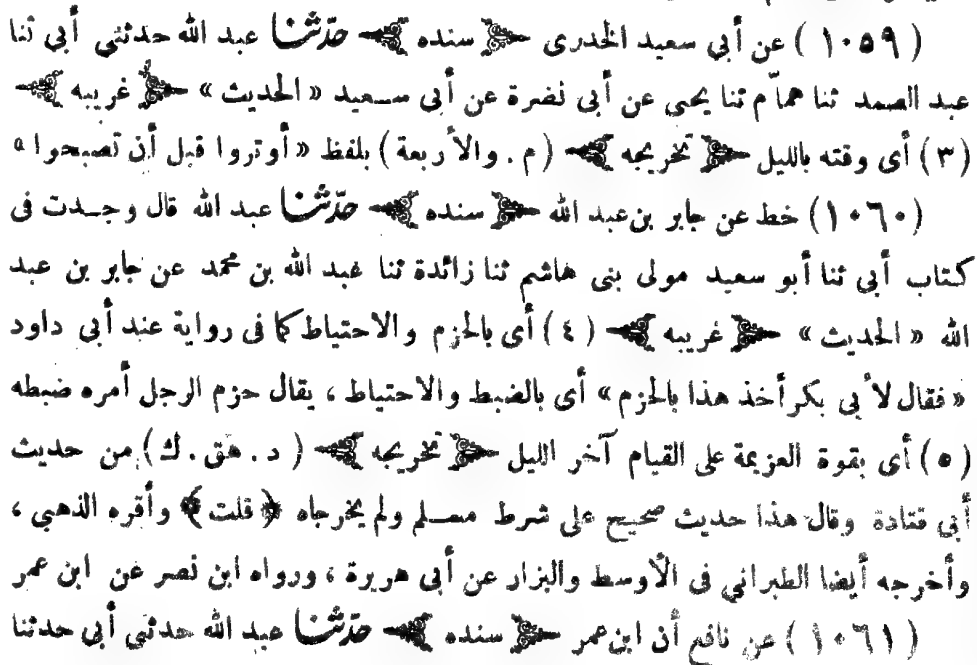 ( ١٠٥٩ ) عن أبي سعيد الخدرى ﴿ سنده ﴾ حدّثنا عبد الله حدثني أبي ثنا
عبد الصمد ثنا همّام ثنا يحيى عن أبى نضرة عن أبى سعيد « الحديث » ﴿ غريبه ﴾
(٣) أى وقته بالليل ﴿ تخريجه ﴾ ( م . والأربعة ) بلفظ « أوتروا قبل أن تصبحوا »
( ١٠٦٠ ) خط عن جابر بن عبد الله ﴿ سنده ﴾ حدّثنا عبد الله قال وجدت فى
كتاب أبي ثنا أبو سعيد مولى بنى هاشم ثنا زائدة ثنا عبد الله بن محمد عن جابر بن عبد
الله « الحديث » ﴿ غريبه ﴾ ( ٤ ) أى بالحزم والاحتياط كما فى رواية عند أبي داود
« فقال لأبى بكر أخذ هذا بالحزم » أى بالضبط والاحتياط ، يقال حزم الرجل أمره ضبطه
( ٥ ) أى بقوة العزيمة على القيام آخر الليل ﴿ تخريجه ﴾ ( د . هق . ك ) من حديث
أبي قتادة وقال هذا حديث صحيح على شرط مسلم ولم يخرجاه ﴿ قلت ﴾ وأقره الذهبي ،
وأخرجه أيضا الطبراني فى الأوسط والبزار عن أبى هريرة ، ورواه ابن نصر عن ابن عمر
( ١٠٦١ ) عن نافع أن ابن عمر ﴿ سنده ﴾ حدّثنا عبد الله حدثني أبي حدثنا